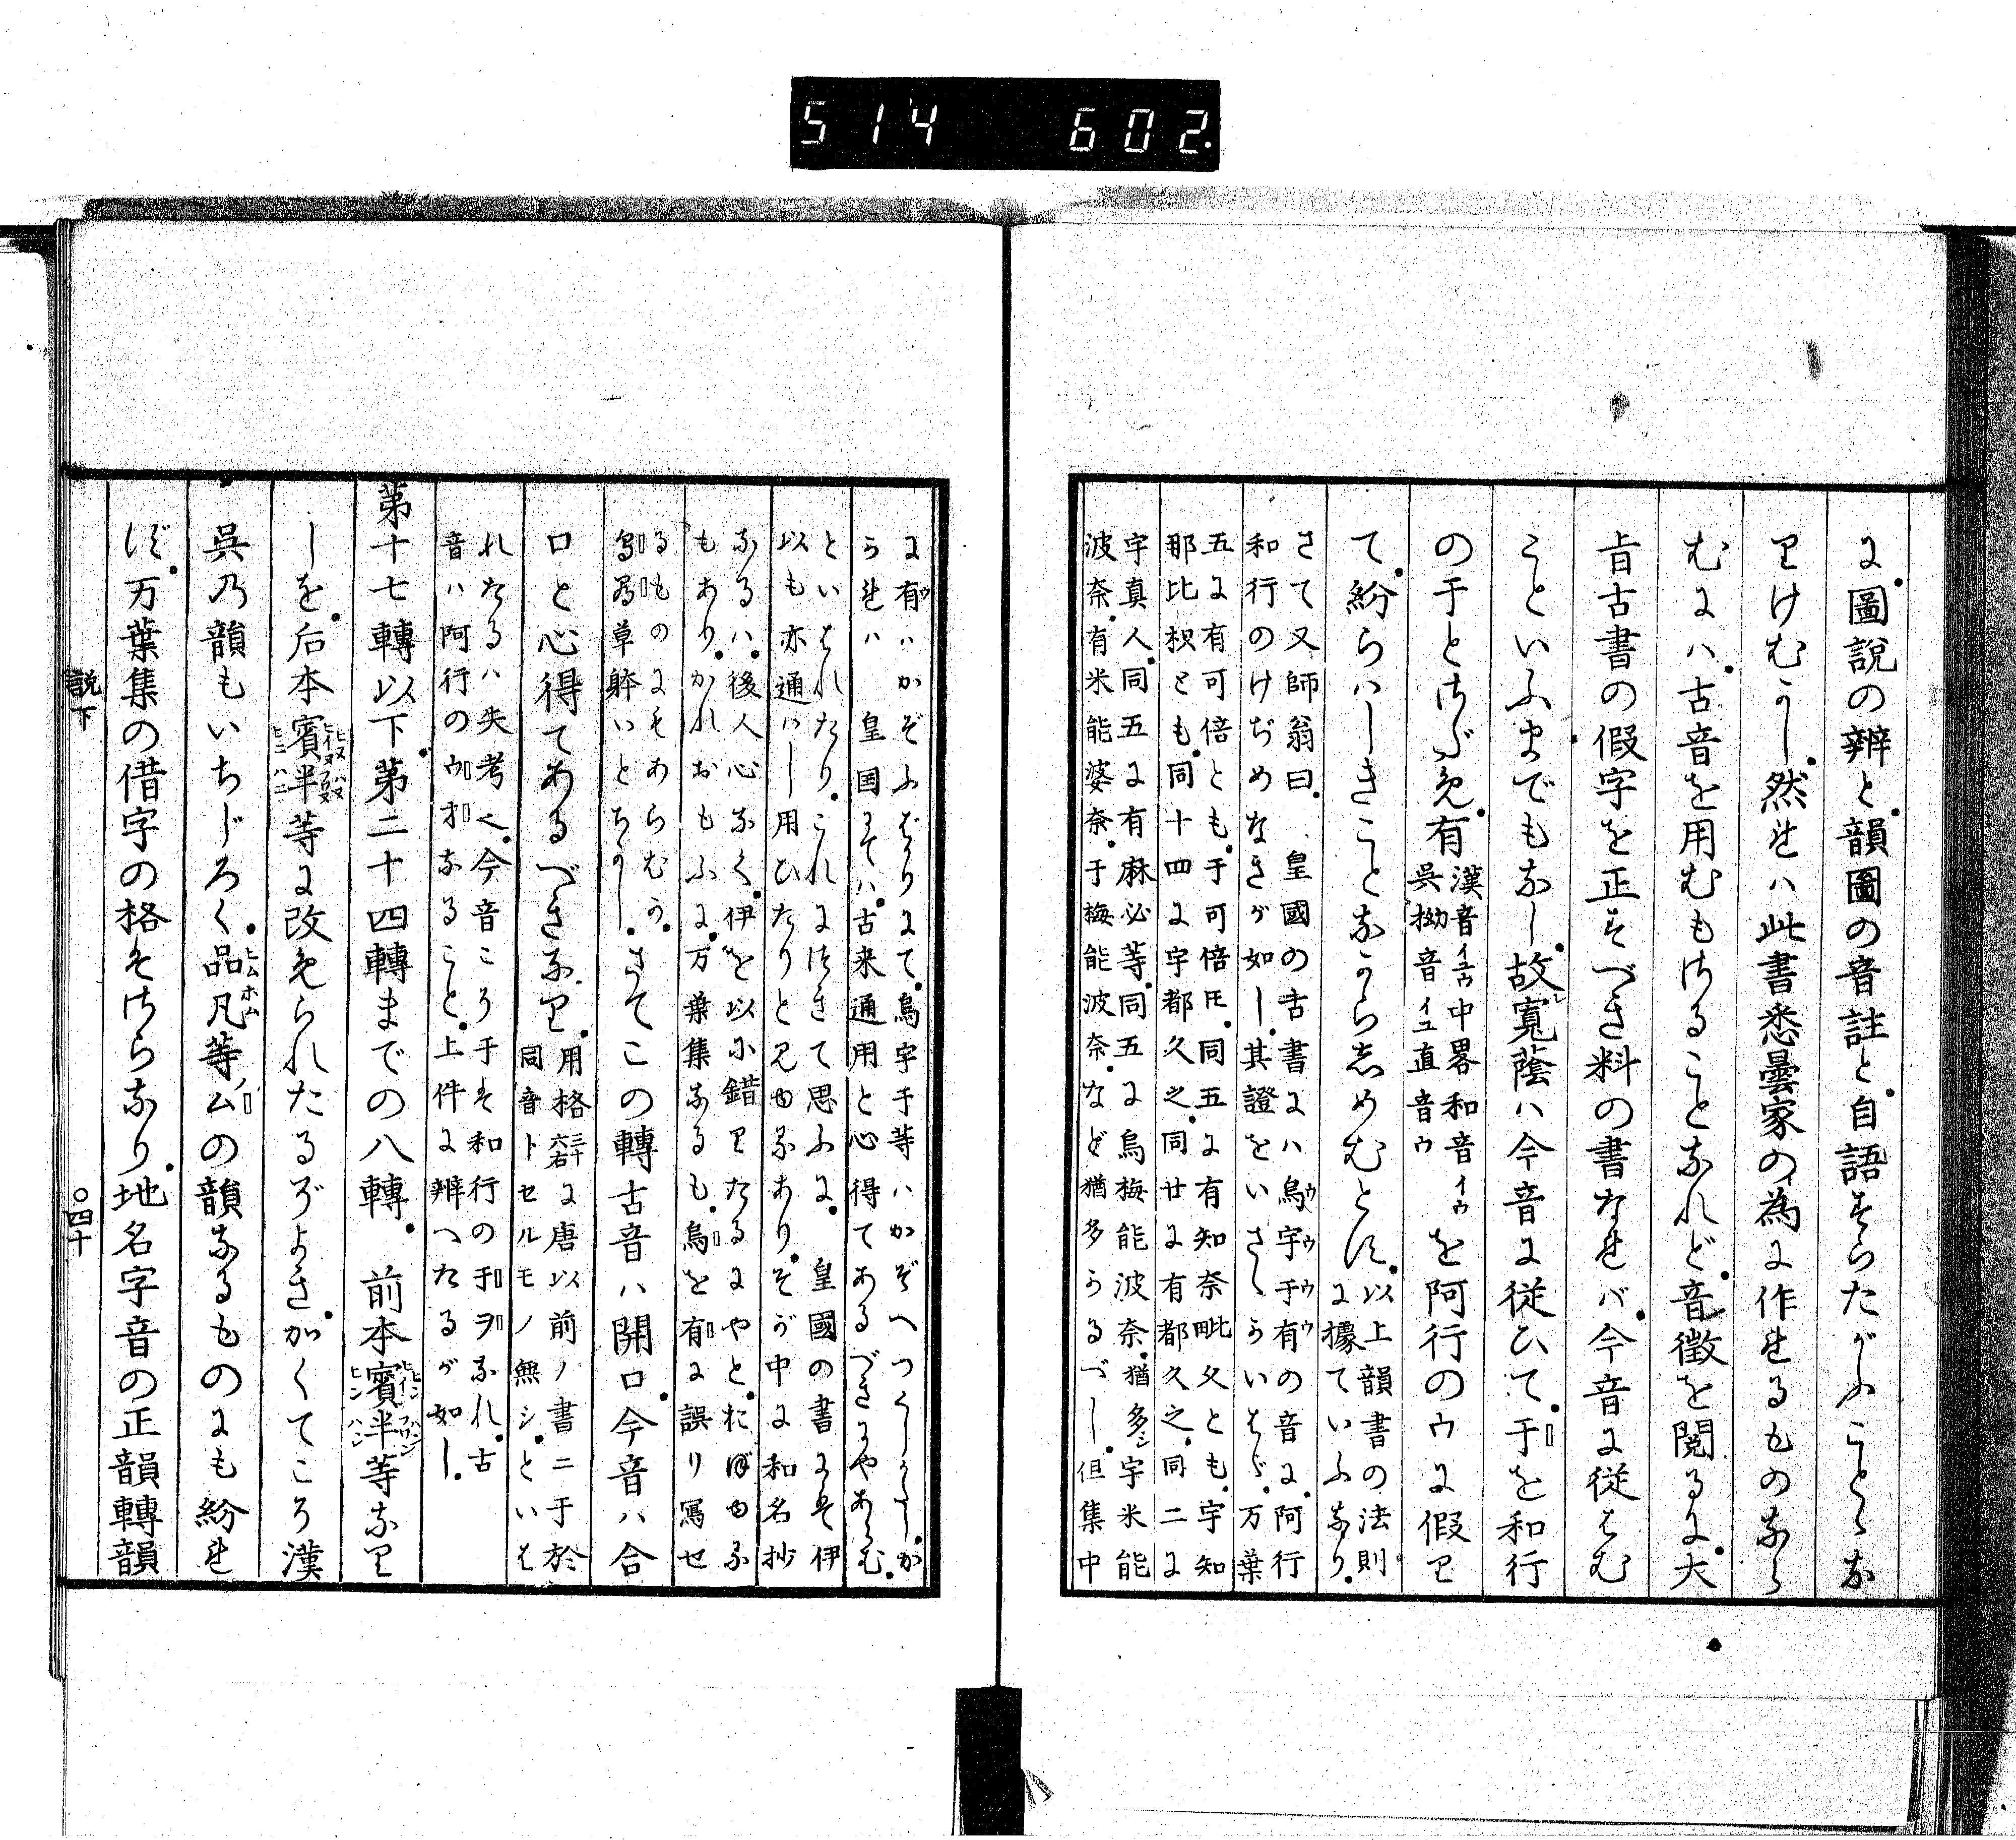 514 602.
に圖説の辨と韻圖の音註と自語そらたがふことゝな
りけむかし然れは此書悉曇家の為に作れるものなら
むにハ古音を用むもさることなれど音徴を閲るに大
旨古書の假字を正すべき料の書なれバ今音に従はむ
こといふまでもなし故寬蔭ハ今音に従ひて于を和行
の于とさだめ有漢音イュウ中畧和音イウ
呉拗音イユ直音ウを阿行のウに假り
て紛らハしきことなからしめむとす以上韻書の法則
に據ていふなり
さて又師翁曰皇國の古書にハ烏宇于有の音に阿行
和行のけぢめなきが如し其證をいさゝかいはゞ万葉
五に有可倍とも于可倍とも同五に有知奈毗久とも宇知
那比枳とも同十四に宇都久之同廿に有都久之同二に
宇真人同五に有麻必等同五に烏梅能波奈猶多シ宇米能
波奈有米能婆奈于梅能波奈など猶多かるべし但集中
に有ハかぞふばかりにて烏宇于等ハかぞへつくしがたしか
られハ皇国にてハ古来通用と心得てあるべきにやあらむ
といはれたりこれにつきて思ふに皇國の書にそ伊
以も亦通ハし用ひたりと見ゆるあり そが中に和名抄
なるハ後人心なく伊を以に錯りたるにやとおぼゆる
もありかれおもふに万葉集なるも烏を有に誤り寫せ
るものにもあらむか
烏有草躰いとちかしさてこの轉古音ハ開口今音ハ合
口と心得てあるべきなり用格三十六右に唐以前ノ書ニ于於
同音トセルモノ無シといは
れたるハ失考也今音こり于そ和行の于ヲなれ古
音ハ阿行のウオなること上件に辨へたるが如し
第十七轉以下第二十四轉までの八轉 前本賓半等なり
しを后本賓半等に改められたるぞよきかくてころ漢
呉乃韻もいちじろく品凡等ムの韻なるものにも紛れ
ず万葉集の借字の格もさらなり地名字音の正韻轉韻
説下
〇四十